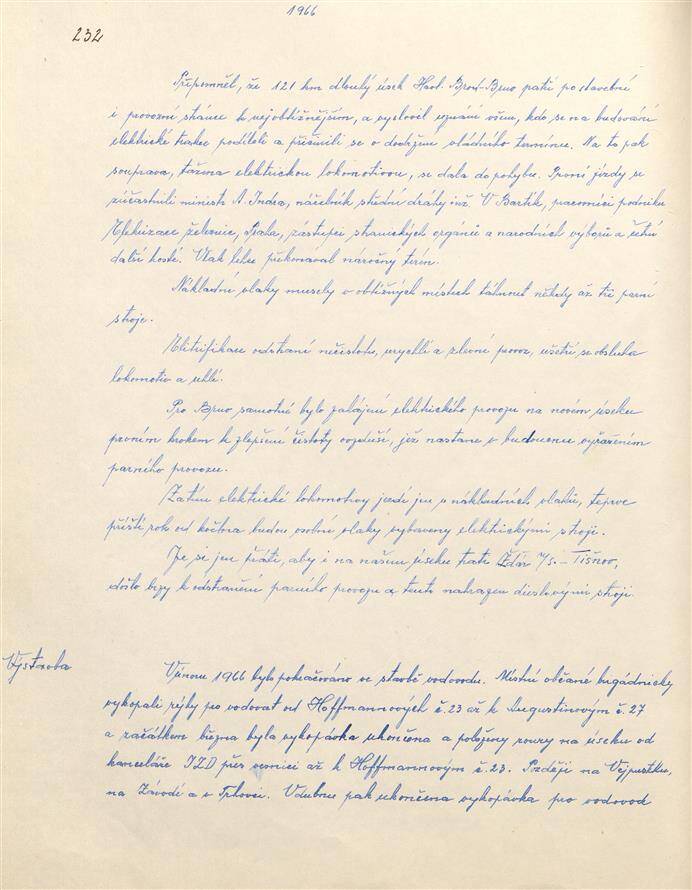 1966
232
Připomněl, že 121 km dlouhý úsek Havl. Brod-Brno patří po stavební
i provozní stránce k nejobtížnějším, a vyslovil uznání všem, kdo se na budování
elektrické trakce podíleli a přičinili se o dodržení vládního termínu. Na to pak
souprava, tažena elektrickou lokomotivou, se dala do pohybu. První jízdy se
zúčastnili ministr A. Indra, náčelník střední dráhy inž. V Bartík, pracovníci podniku
Elektrizace železnic, Praha, zástupci stranických orgánů a národních výborů a četní
další hosté. Vlak lehce překonával náročný terén.
Nákladní vlaky musely v obtížných místech táhnout někdy až tři parní
stroje.
Elektrifikace odstraní nečistotu, urychlí a zlevní provoz, ušetří se obsluha
lokomotiv a uhlí.
Pro Brno samotné bylo zahájení elektrického provozu na novém úseku
prvním krokem k zlepšení čistoty ovzduší, jež nastane v budoucnu vyřazením
parního provozu.
Zatím elektrické lokomotivy jezdí jen u nákladních vlaků, teprve
příští rok od května budou osobní vlaky vybaveny elektrickými stroji.
Je si jen přáti, aby i na našem úseku trati Žďár n/S. – Tišnov,
došlo brzy k odstranění parního provozu a tento nahrazen dieslovými stroji.
Výstavba
V únoru 1966 bylo pokračováno ve stavbě vodovodu. Místní občané brigádnicky
vykopali rýhy pro vodovod od Hoffmannových č. 23 až k Augustinovým č. 27
a začátkem března byla vykopávka ukončena a položeny roury na úseku od
kanceláře JZD přes vesnici až k Hoffmannovým č. 23. Později na Vejpustku,
na Závodí a v Trhovci. V dubnu pak ukončena vykopávka pro vodovod